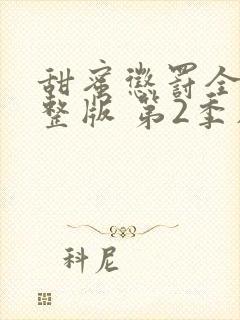 甜蜜惩罚全
整版 第2季
科尼